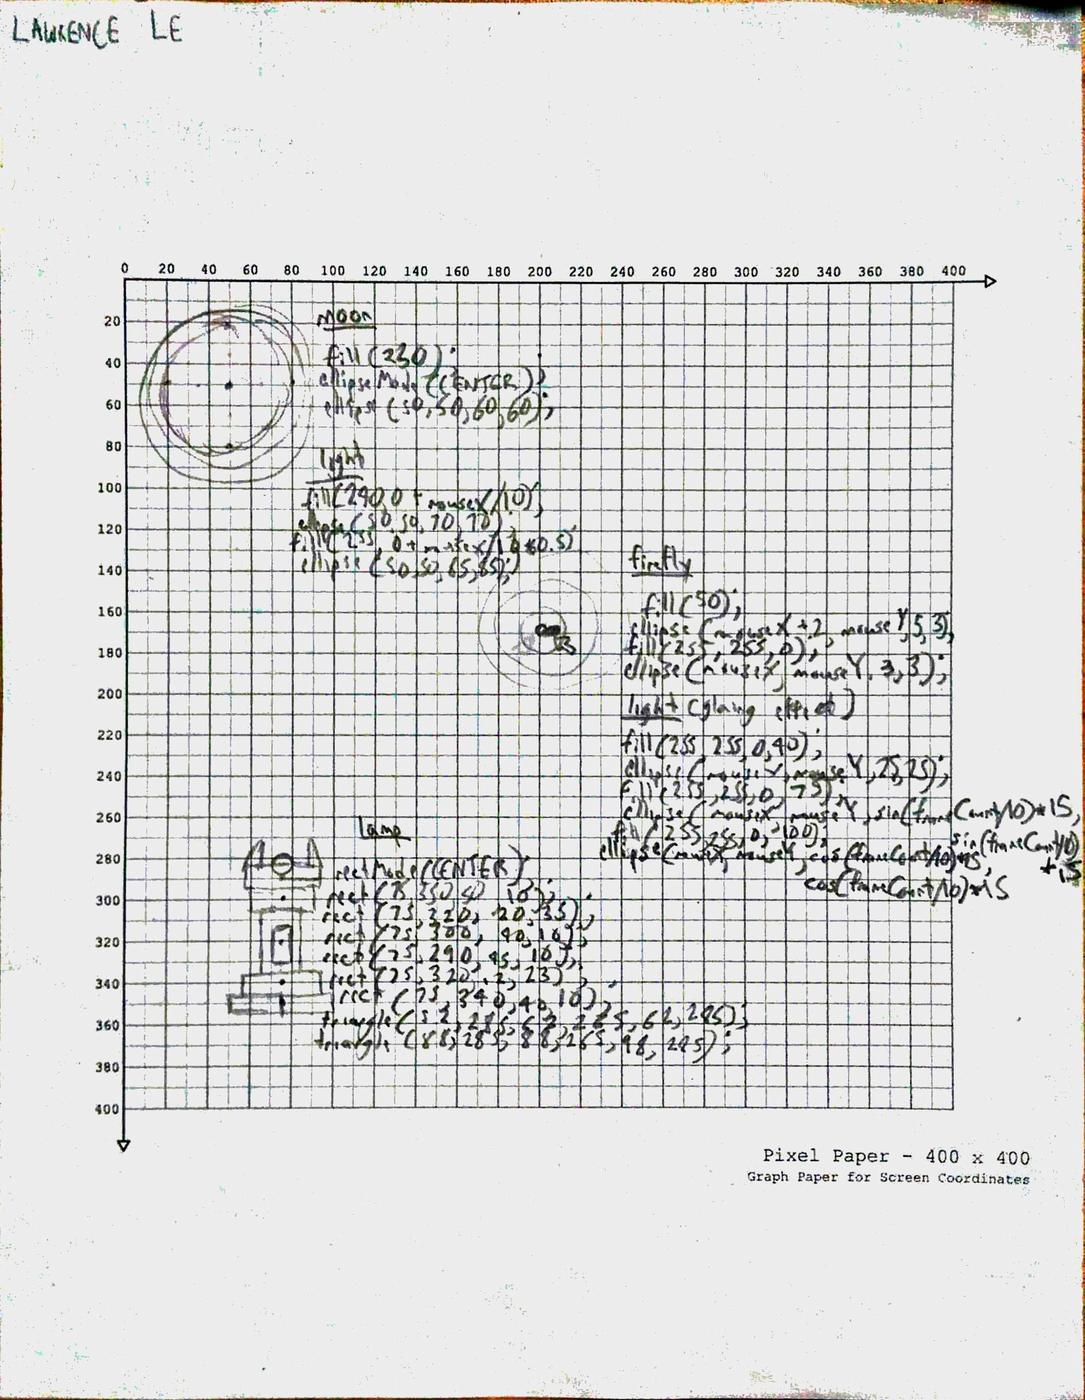 LAWRENCE LE
0 20 40 60 80 100 120 140 160 180 200 220 240 260 280 300 320 340 360 380 400
20
40
60
80
100
120
140
160
180
200
220
240
260
280
300
320
340
360
380
400
moon
fill(230);
ellipseMode(CENTER);
ellipse(50,50,60,60);
light
fill(240,0 + mouseX/10);
ellipse(50,50,70,70);
fill(255, 0 + mouseX/10*0.5)
ellipse(50,50,85,85);
firefly
fill(50);
ellipse(mouseX+2, mouseY,5,3);
fill(255, 255,0);
ellipse(mouseX, mouseY, 3,3);
light (glowing effect)
fill(255,255,0,40);
ellipse(mouseX, mouseY,25,25);
fill(255,255,0,75);
ellipse(mouseX, mouseY, sin(frameCount/10)*15,
sin(frameCount/10)
*15
fill(255,255,0,100);
ellipse(mouseX, mouseY, cos(frameCount/10)*15,
cos(frameCount/10)*15
Lamp
rectMode(CENTER)
rect(75,350, 10);
rect(75,220, 20,35);
rect(75, 300, 40,10);
rect(75,290, 45, 10);
rect(75,320, 2, 23);
rect(75,340,40,10);
triangle(52,285,62,265,62,285);
triangle(88,285,88,265,98,285);
Pixel Paper - 400 x 400
Graph Paper for Screen Coordinates